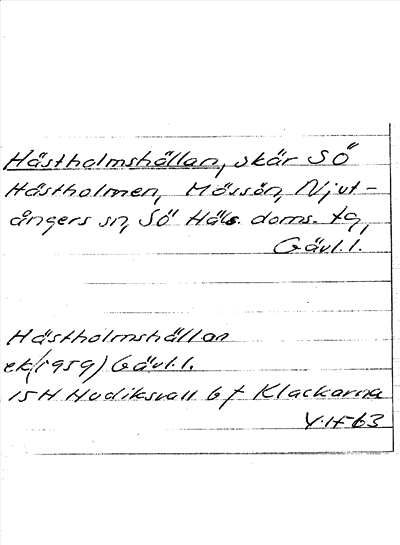 Hästholmshällan, skär SÖ
Hästholmen, Mössön, Njut-
ångers sn, SÖ Häls. doms. tg,
Gävl.l.
Hästholmshällan
ek(1959) Gävl.l.
15H Hudiksvall 6f Klackarna
V.H-63